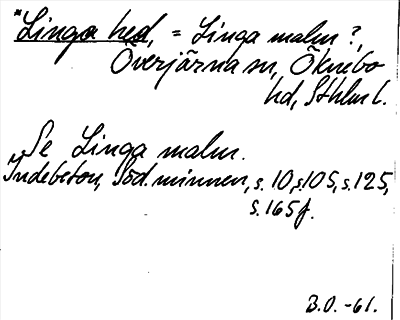 *Linga hed, = Linga malm?,
Överjärna sn, Öknebo
hd, Sthlm l.
Se Linga malm.
Indebetou, Söd. minnen, s. 10, s. 105, s. 125,
s. 165 f.
B.O. -61.